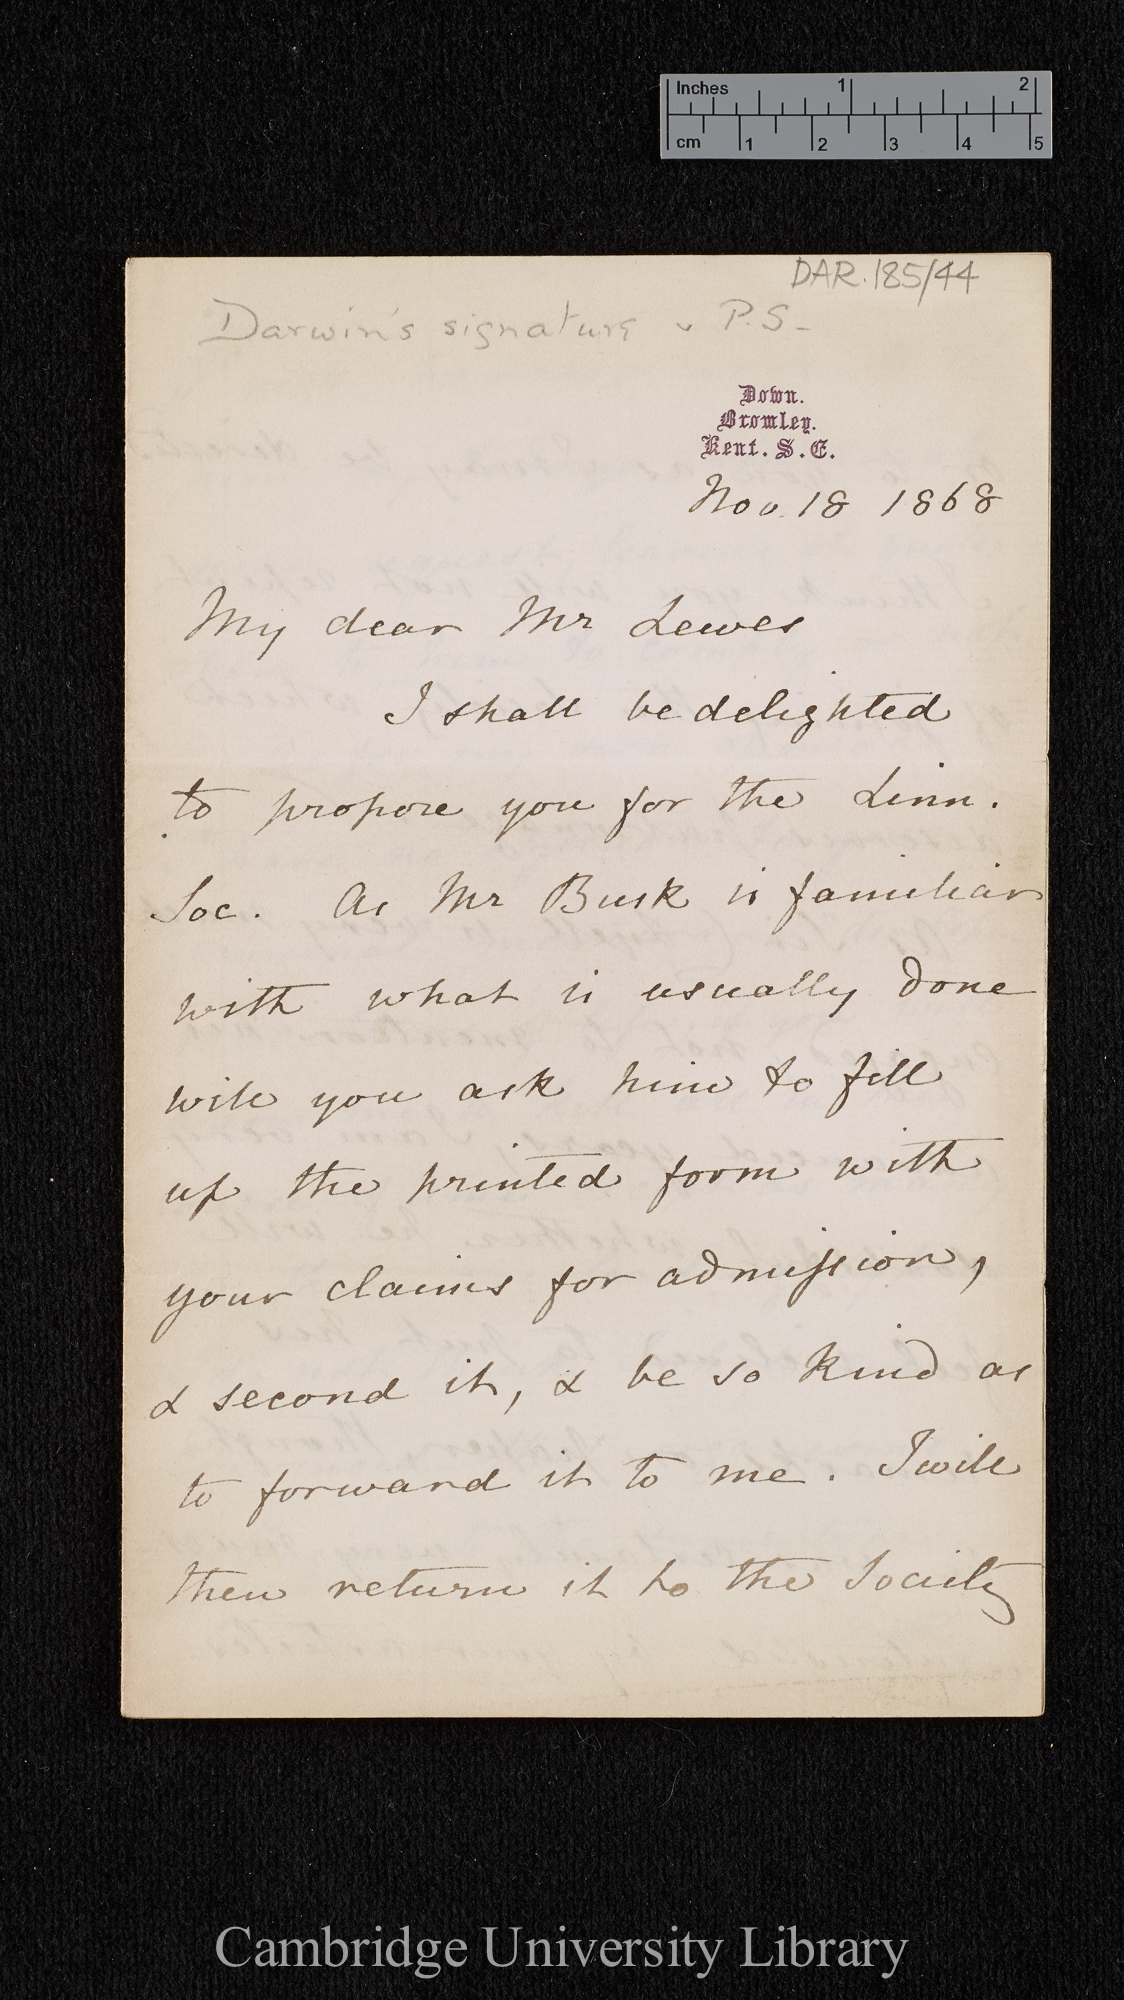 Inches 1 2
cm 1 2 3 4 5
DAR.185/44
Darwin's signature & P.S-
Down.
Bromley.
Kent. S. E.
Nov. 18 1868
My dear Mr Lewes
I shall be delighted
to propose you for the Linn.
Soc. As Mr Busk is familiar
with what is usually done
will you ask him to fill
up the printed form with
your claims for admission,
& second it, & be so kind as
to forward it to me. I will
then return it to the Society
Cambridge University Library